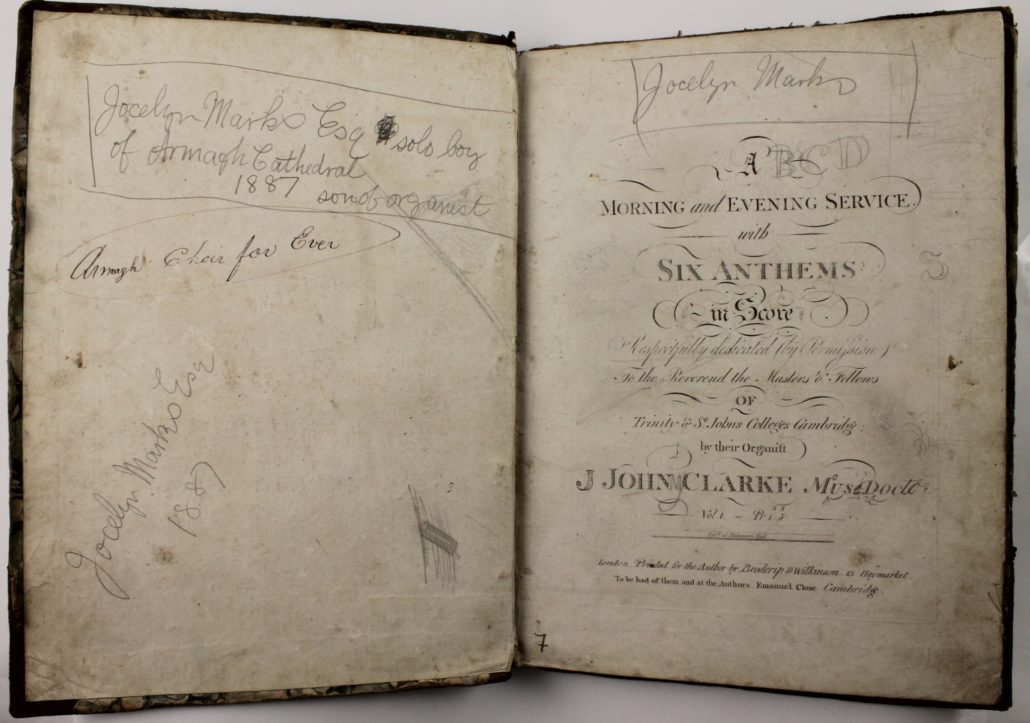 Jocelyn Marks Esq solo boy
of Armagh Cathedral
1887 son of organist
Armagh Choir for Ever
Jocelyn Marks Esq
1887
Jocelyn Marks
A BCD
MORNING and EVENING SERVICE.
with
SIX ANTHEMS
in Score
Respectfully dedicated (by Permission)
To the Reverend the Masters & Fellows
OF
Trinity & St. Johns Colleges Cambridge;
by their Organist
J JOHN CLARKE Mus: Doctr
Vol 1 – Pr
London, Printed for the Author by Broderip & Wilkinson 13 Haymarket
To be had of them and at the Authors Emanuel Close Cambridge.
7